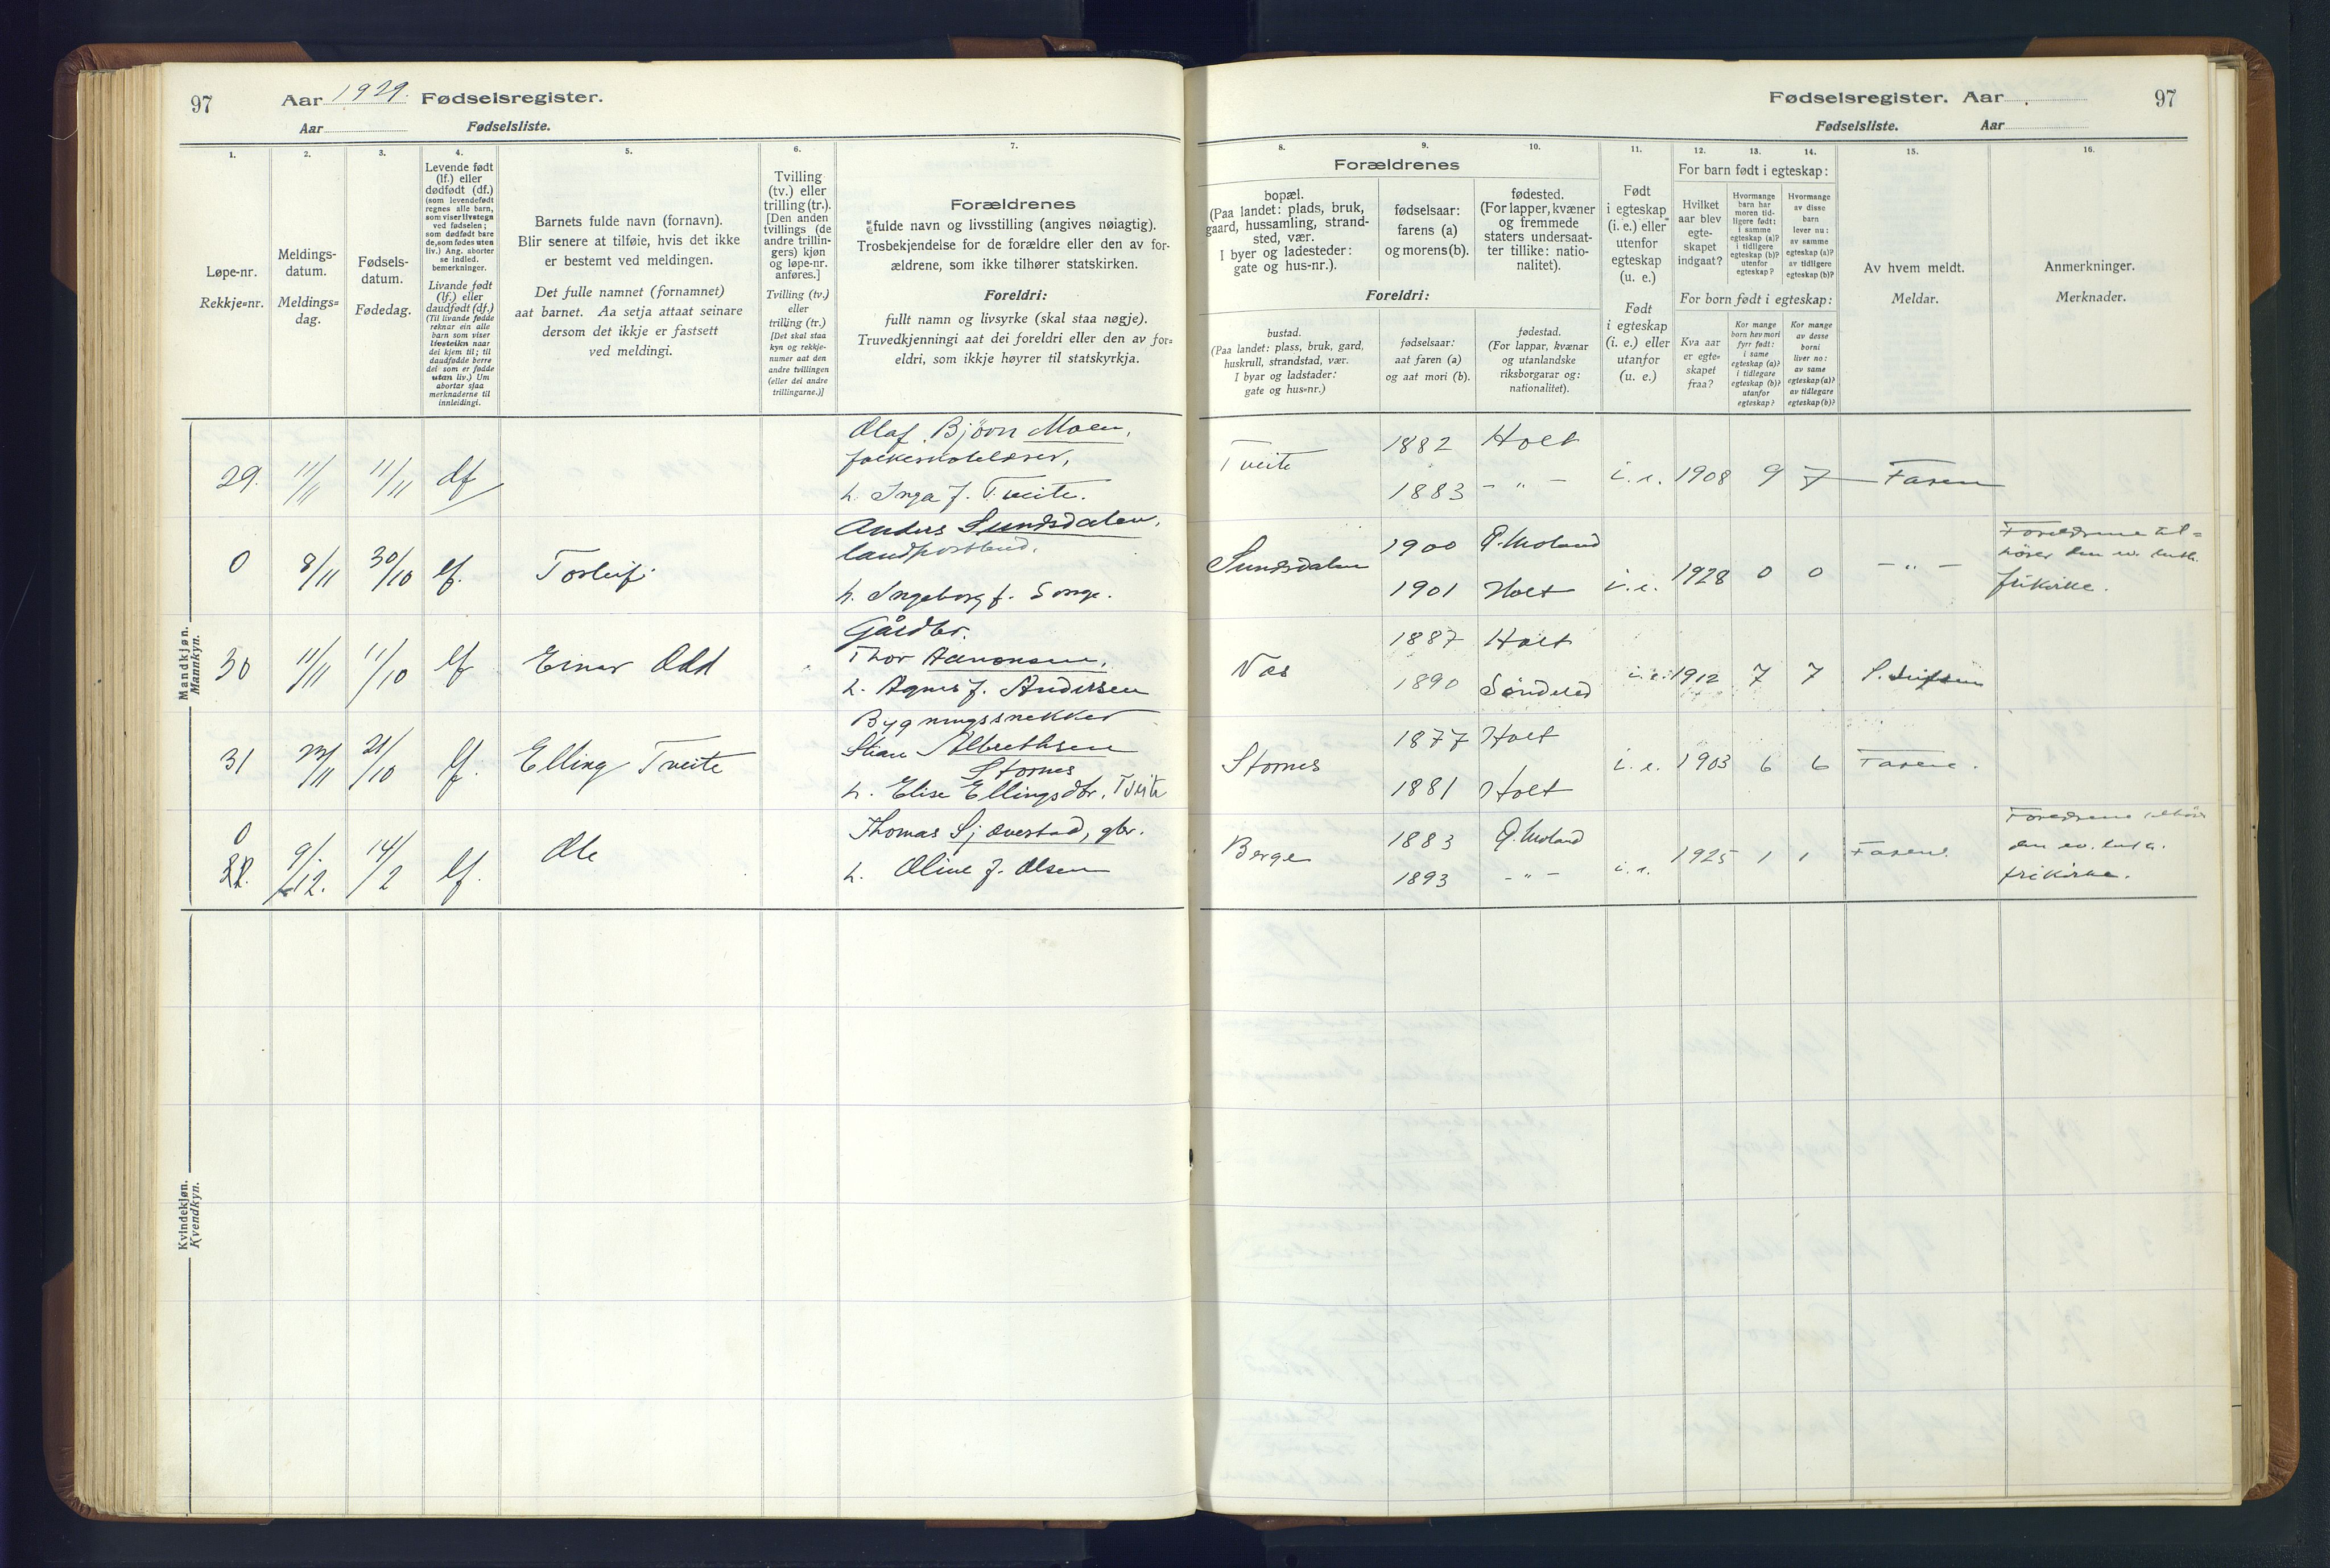 97
Aar 1929. Fødselsregister.
Aar
Fødselsliste.
1.
Løpe-nr.
Rekkje-nr.
2.
Meldings-
datum.
Meldings-
dag.
3.
Fødsels-
datum.
Fødedag.
4.
Levende født
(lf.) eller
dødfødt (df.)
(som levendefødt
regnes alle barn,
som viser livstegn
ved fødselen;
som dødfødt bare
de, som fødes uten
liv.) Ang. aborter
se indled.
bemerkninger.
Livande født
(lf.) eller
daudfødt (df.)
(Til livande fødde
reknar ein alle
barn som viser
livsteikn naar
dei kjem til; til
daudfødde berre
dei som er fødde
utan liv.) Um
abortar sjaa
merknaderne til
innleidingi.
5.
Barnets fulde navn (fornavn).
Blir senere at tilføie, hvis det ikke
er bestemt ved meldingen.
Det fulle namnet (fornamnet)
aat barnet. Aa setja attaat seinare
dersom det ikkje er fastsett
ved meldingi.
6.
Tvilling
(tv.) eller
trilling (tr.).
[Den anden
tvillings (de
andre trillin-
gers) kjøn
og løpe-nr.
anføres.]
Tvilling (tv.)
eller
trilling (tr.)
[Det skal staa
kyn og rekkje-
numer aat den
andre tvillingen
(eller dei andre
trillingarne.)]
7.
Forældrenes
fulde navn og livsstilling (angives nøiagtig).
Trosbekjendelse for de forældre eller den av for-
ældrene, som ikke tilhører statskirken.
Foreldri:
fullt namn og livsyrke (skal staa nøgje).
Truvedkjenningi aat dei foreldri eller den av for-
eldri, som ikkje høyrer til statskyrkja.
Mandkjøn.
Mannkyn.
29. 11/11 11/11 df
Olaf Bjørn Moen,
folkeskolelærer,
h. Inga f. Tveite.
0 8/11 30/10 lf. Torleif
Anders Sundsdalen,
landpostbud.
h. Ingeborg f. Songe.
30 11/11 11/10 lf Einar Odd
Gårdbr.
Thor Aanonsen,
h. Agnes f. Andersen
31 23/11 21/10 lf. Elling Tveite
Bygningssnekker
Stian Albrethsen
Stornes
h. Elise Ellingsdtr. Tveite
0
9/12. 14/2 lf. Ole
Thomas Sjäverstad, gbr.
h. Oline f. Olsen
Kvindekjøn.
Kvendkyn.
Fødselsregister. Aar
97
Fødselsliste.
Aar
8.
Forældrenes
bopæl.
(Paa landet: plads, bruk,
gaard, hussamling, strand-
sted, vær.
I byer og ladesteder:
gate og hus-nr.).
Foreldri:
bustad.
(Paa landet: plass, bruk, gard,
huskrull, strandstad, vær.
I byar og ladstader:
gate og hus-nr.)
9.
fødselsaar:
farens (a)
og morens (b).
fødselsaar:
aat faren (a)
og aat mori (b).
10.
fødested.
(For lapper, kvæner
og fremmede
staters undersaat-
ter tillike: natio-
nalitet).
fødestad.
(For lappar, kvænar
og utanlandske
riksborgarar og:
nationalitet).
11.
Født
i egteskap
(i. e.) eller
utenfor
egteskap
(u. e.)
Født
i egteskap
(i. e.) eller
utanfor
(u. e.)
12. 13. 14.
For barn født i egteskap:
Hvilket
aar blev
egte-
skapet
indgaat?
Hvormange
barn har
moren tid-
ligere født:
i samme
egteskap (a)?
i tidligere
egteskap (b)?
utenfor
egteskap?
Hvormange
av disse
barn
lever nu:
av samme
egteskap (a)?
av tidligere
egteskap (b)?
For born født i egteskap:
Kva aar
er egte-
skapet
fraa?
Kor mange
born hev mori
fyrr født:
i same
egteskap (a)?
i tidlegare
egteskap (b)?
utanfor
egteskap?
Kor mange
av desse
borni
liver no:
av same
egteskap (a)?
av tidlegare
egteskap (b)?
15.
Av hvem meldt.
Meldar.
16.
Anmerkninger.
Merknader.
Tveite 1882 Holt
1883 - " - i. e. 1908 9 7 Faren
Sundsdalen 1900 Ø. Moland
1901 Holt i. e. 1928 0 0 - " -
Foreldrene til-
hører den ev. luth.
frikirke.
Næs 1887 Holt
1890 Søndeled i. e. 1912 7 7
Stornes 1877 Holt
1881 Holt i. e. 1903 6 6 Faren.
Berge 1883 Ø. Moland
1893 - " - i. e. 1925 1 1 Faren.
Foreldrene tilhör
den ev. luth.
frikirke.